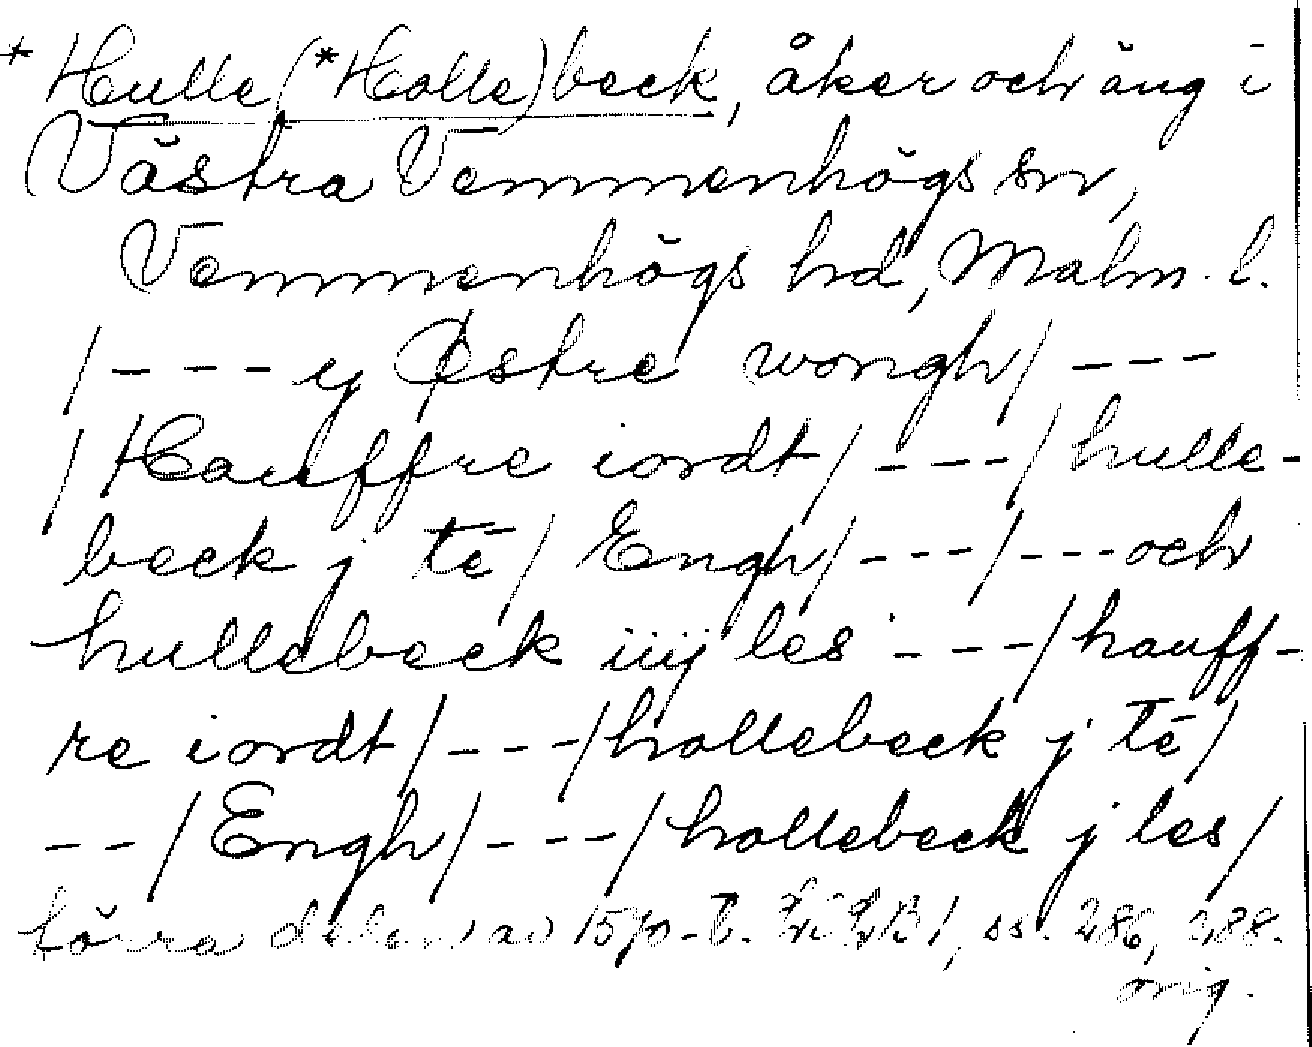 * Hulle(*Holle)beck, åker och äng i
Västra Vemmenhögs sn,
Vemmenhögs hd, Malm. l.
/---y Østre wongh/ ---
/Hauffre iordt/---/hulle-
beck j tē/ Engh/---/---och
hullebeck iiij les ---/hauff-
re iordt/---/hollebeck j tē/
--/Engh/---/hollebeck j les/
förra delen av 1570-t. ss. 286, 288.
orig.